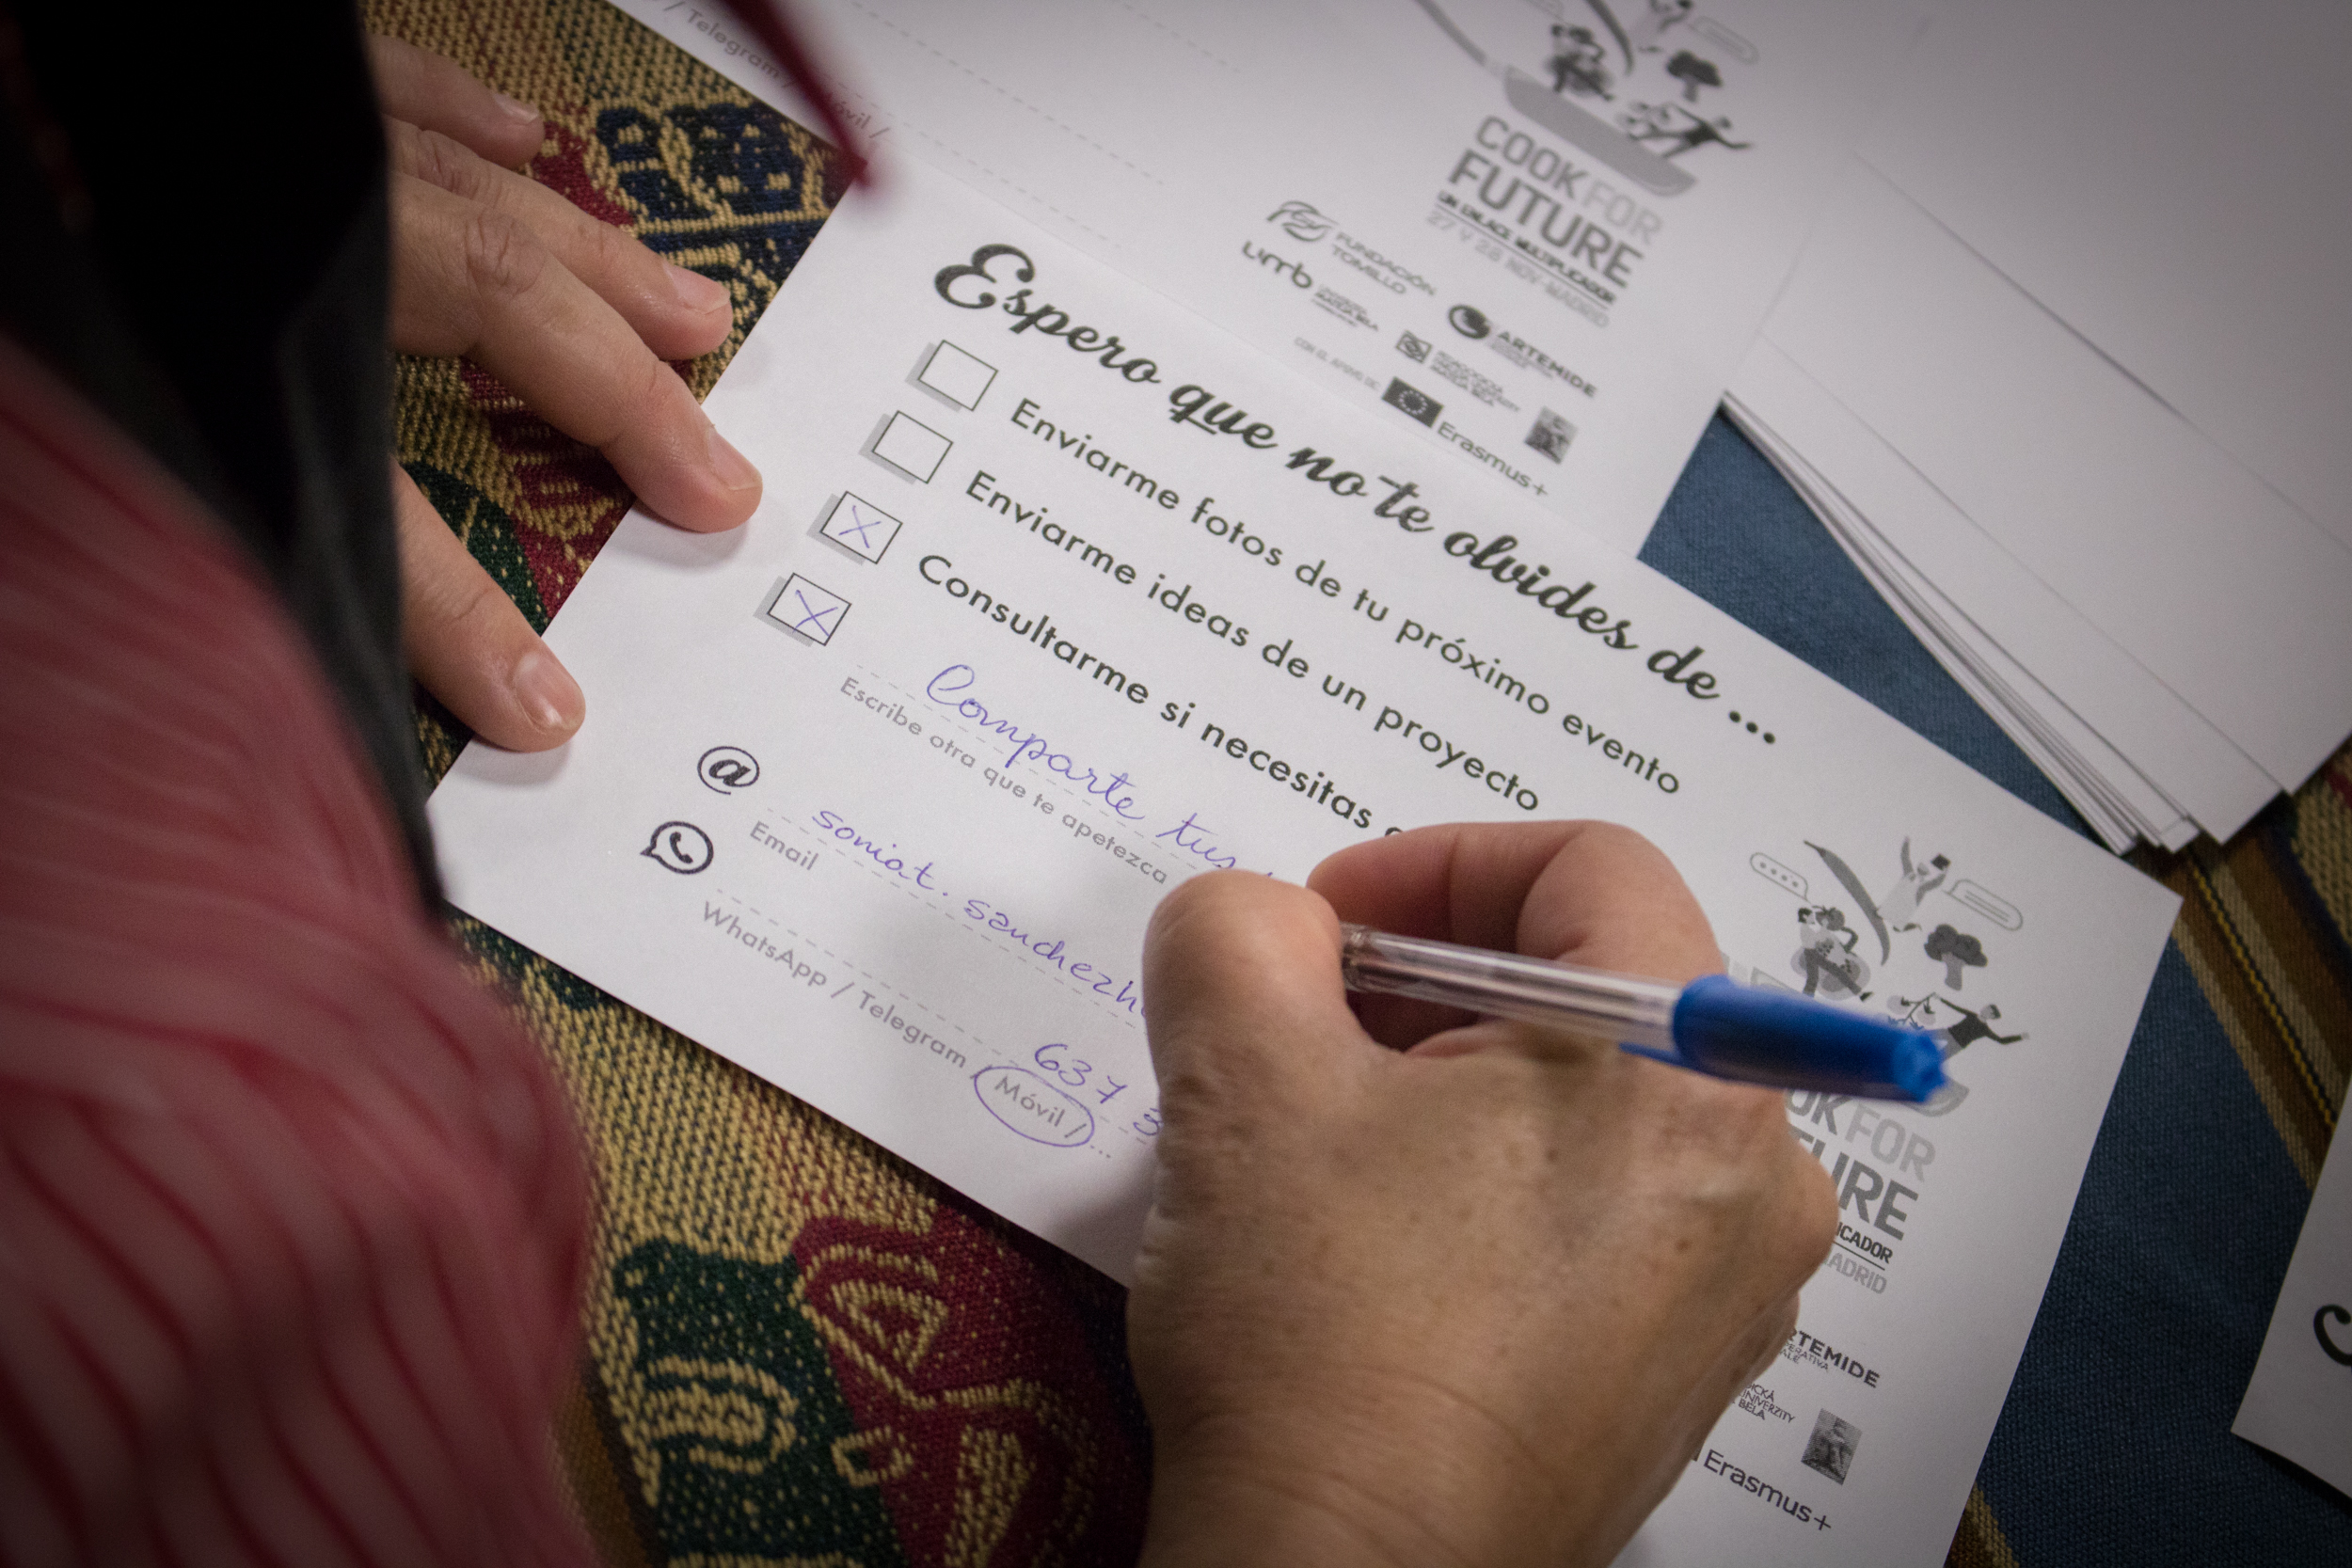 / Telegram / Móvil /
COOK FOR
FUTURE
UN ENLACE MULTIPLICADOR
27 Y 28 NOV-MADRID
FUNDACIÓN
TOMILLO
umb
ARTEMIDE
CON EL APOYO DE:
Erasmus+
Espero que no te olvides de ...
Enviarme fotos de tu próximo evento
Enviarme ideas de un proyecto
Consultarme si necesitas
Comparte tus
Escribe otra que te apetezca
@ soniat.sanchezh
Email
637 3
WhatsApp / Telegram / Móvil / ...
OK FOR
URE
ICADOR
ADRID
RTEMIDE
Erasmus+